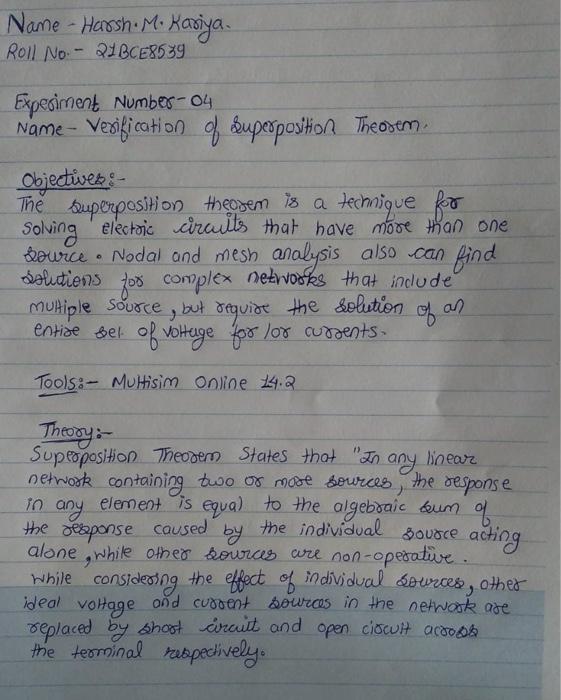 Name - Harsh. M. Kariya.
Roll No. - 21BCE8539
Experiment Number - 04
Name - Verification of Superposition Theorem.
Objectives :-
The superposition theorem is a technique for
solving electric circuits that have more than one
source. Nodal and mesh analysis also can find
solutions for complex networks that include
multiple source, but require the solution of an
entire set of voltage for /or currents.
Tools :- Multisim Online 14.2
Theory :-
Superposition Theorem States that "In any linear
network containing two or more sources, the response
in any element is equal to the algebraic sum of
the response caused by the individual source acting
alone, while other sources are non-operative.
While considering the effect of individual sources, other
ideal voltage and current sources in the network are
replaced by short circuit and open circuit across
the terminal respectively.